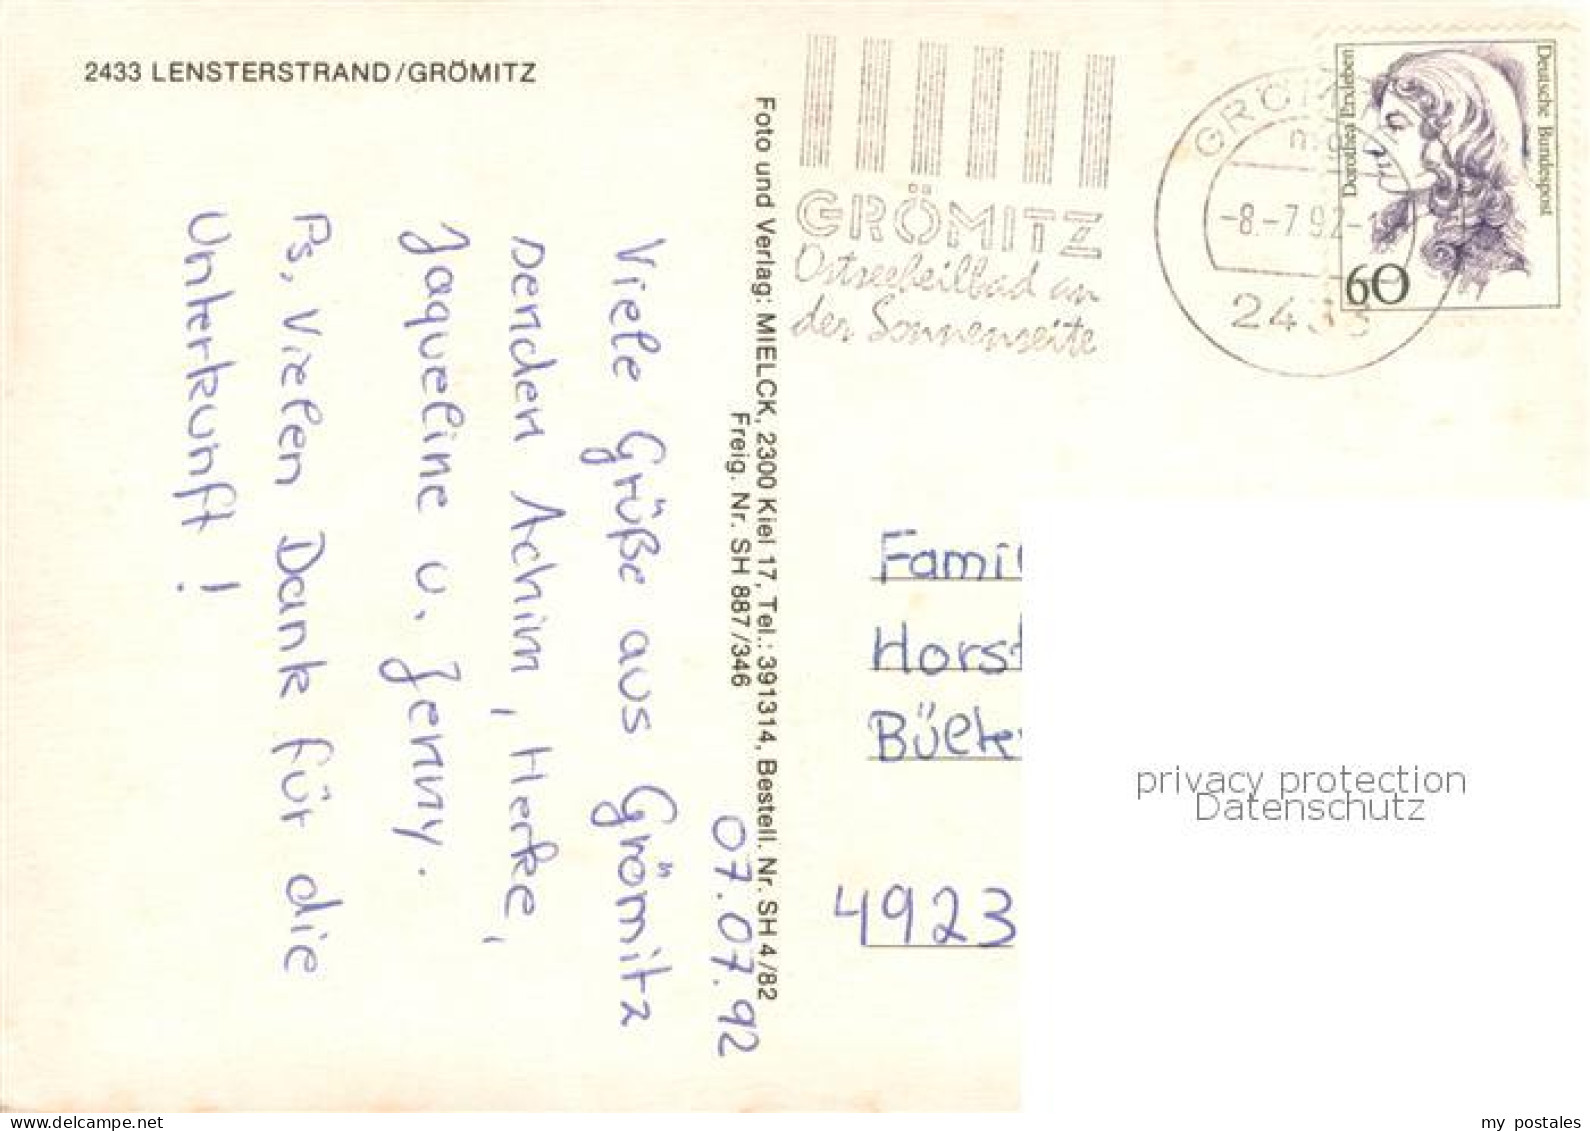 2433 LENSTERSTRAND/GRÖMITZ
Foto und Verlag: MIELCK, 2300 Kiel 17, Tel.: 391314, Bestell. Nr. SH 4/82
Freig. Nr. SH 887/346
07.07.92
Viele Grüße aus Grömitz
senden Achim, Heike,
Jaqueline u. Jenny.
Ps. Vielen Dank für die
Unterkunft!
GRÖMITZ
Ostseeheilbad an
der Sonnenseite
GRÖMI
-8.-7.92-1
2433
Deutsche Bundespost
Dorothea Erxleben
60
Fami
Horst
4923
privacy protection
Datenschutz
www.delcampe.net
my_postales